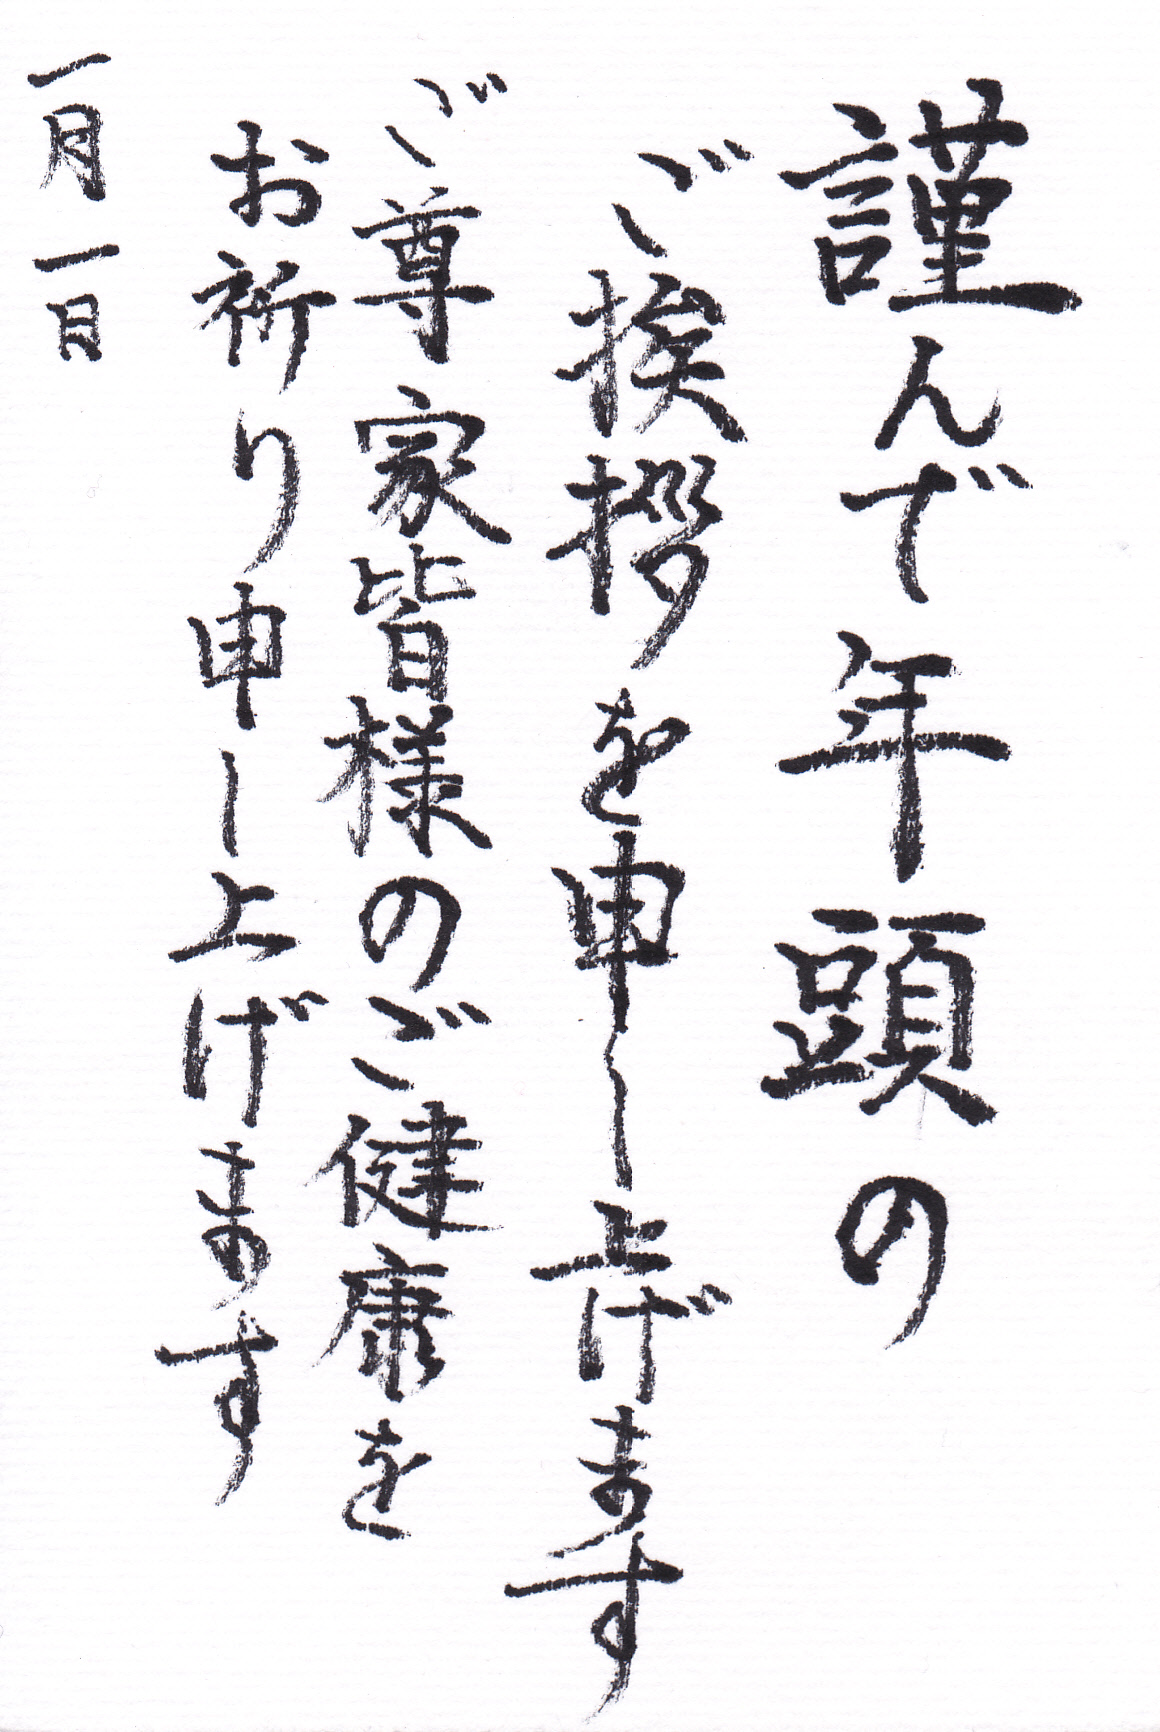 謹んで年頭の
ご挨拶を申し上げます
ご尊家皆様のご健康を
お祈り申し上げます
一月一日